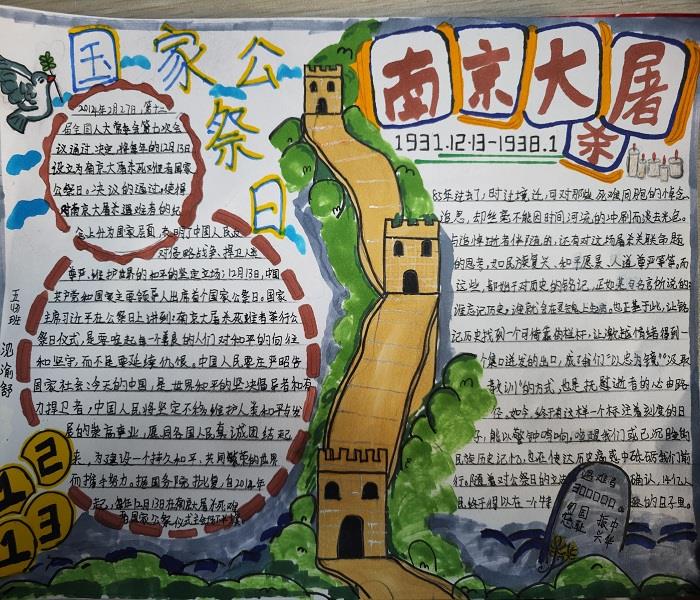 国家公
祭
日
南京大屠
杀
1931.12.13-1938.1
2014年2月27日,第十二
届全国人大常务会第七次会
议通过决定,将每年的12月13日
设立为南京大屠杀死难者国家
公祭日。决议的通过,使得
对南京大屠杀遇难者的纪
念上升为国家层面,表明了中国人民反
对侵略战争、捍卫人类
尊严,维护世界的和平的坚定立场;12月13日,中国
共产党和国家主要领导人出席首个国家公祭日。国家
主席习近平在公祭日上讲到:南京大屠杀死难者举行公
祭日仪式,是要唤起每一善良的人们对和平的向往
和坚守,而不是要延续仇恨。中国人民要庄严昭告
国家社会:今天的中国,是世界和平的坚决倡导者和有
力捍卫者,中国人民将坚定不移维护人类和平与发
展的崇高事业,愿同各国人民真诚团结起
来,为建设一个持久和平、共同繁荣的世界
而携手努力。据国务院批复,自2014年
起,每年12月13日在南京大屠杀死难
者国家公祭仪式
五(3)班
12
13
85年过去了,时过境迁,可对那些死难同胞的悼念、
追思,却丝毫不能因时间河流的冲刷而淡去光色。
与追悼逝者伴随的,还有对这场屠杀关联命题
的思考,如民族复兴、和平愿景、人道尊严等等,而
这些,都始于对历史的铭记。正如某句名言所说的:
谁忘记历史,谁就会在灵魂上生病。也正基于此,让铭
记历史找到一个可倚靠的栏标,让激越情绪得到一
个集口迸发的出口,成了我们
教训”的方式,也是抚慰逝者的心由路
径。如今,终于有这样一个标注着刻度的日
子,能以警钟鸣响,唤醒我们或已沉睡的
民族历史记忆,也在使达历史痛感中砥砺我们前
行。随着对公祭日的立法确认,14亿人
民终于得以在一个特殊的日子里。
遇难者
300000
勿忘国耻
振兴中华